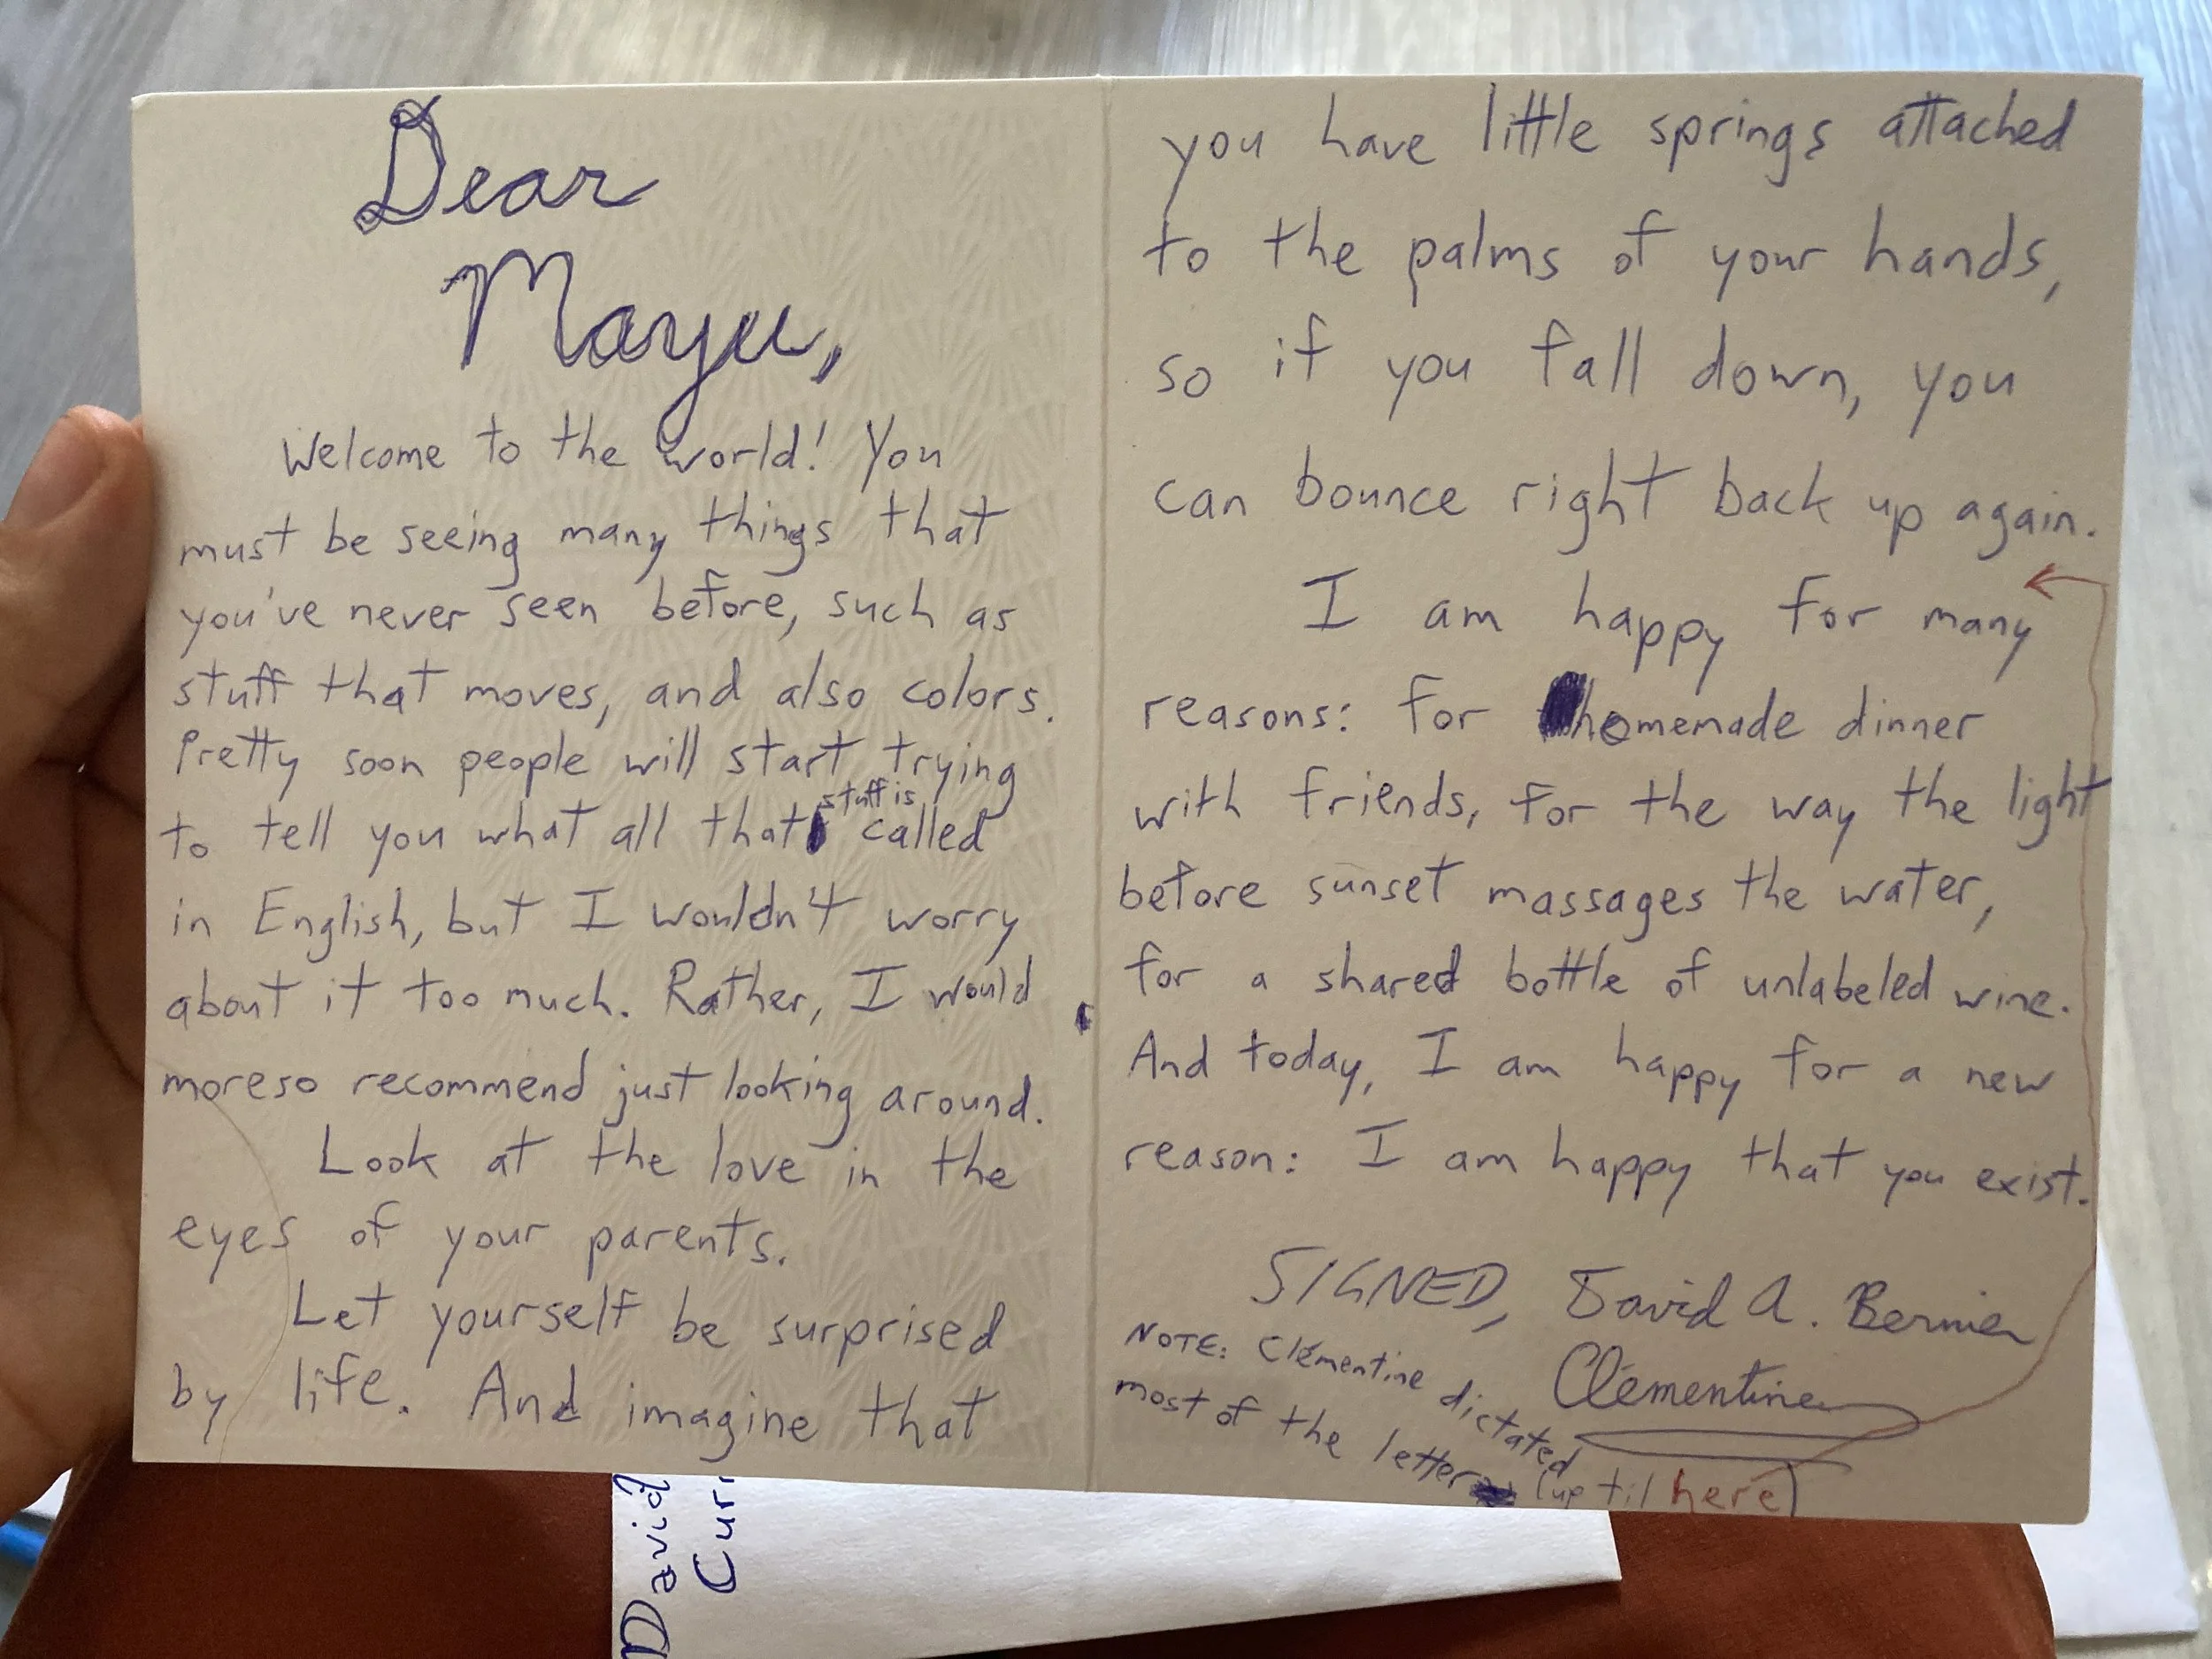 Dear
Mayu,
Welcome to the world! You
must be seeing many things that
you've never seen before, such as
stuff that moves, and also colors.
Pretty soon people will start trying
to tell you what all that stuff is called
in English, but I wouldn't worry
about it too much. Rather, I would
moreso recommend just looking around.
Look at the love in the
eyes of your parents.
Let yourself be surprised
by life. And imagine that
you have little springs attached
to the palms of your hands,
so if you fall down, you
can bounce right back up again.
I am happy for many
reasons: for homemade dinner
with friends, for the way the light
before sunset massages the water,
for a shared bottle of unlabeled wine.
And today, I am happy for a new
reason: I am happy that you exist.
SIGNED, David A. Bernier
Clémentine
NOTE: Clémentine dictated
most of the letter (up til here)
David
Curr